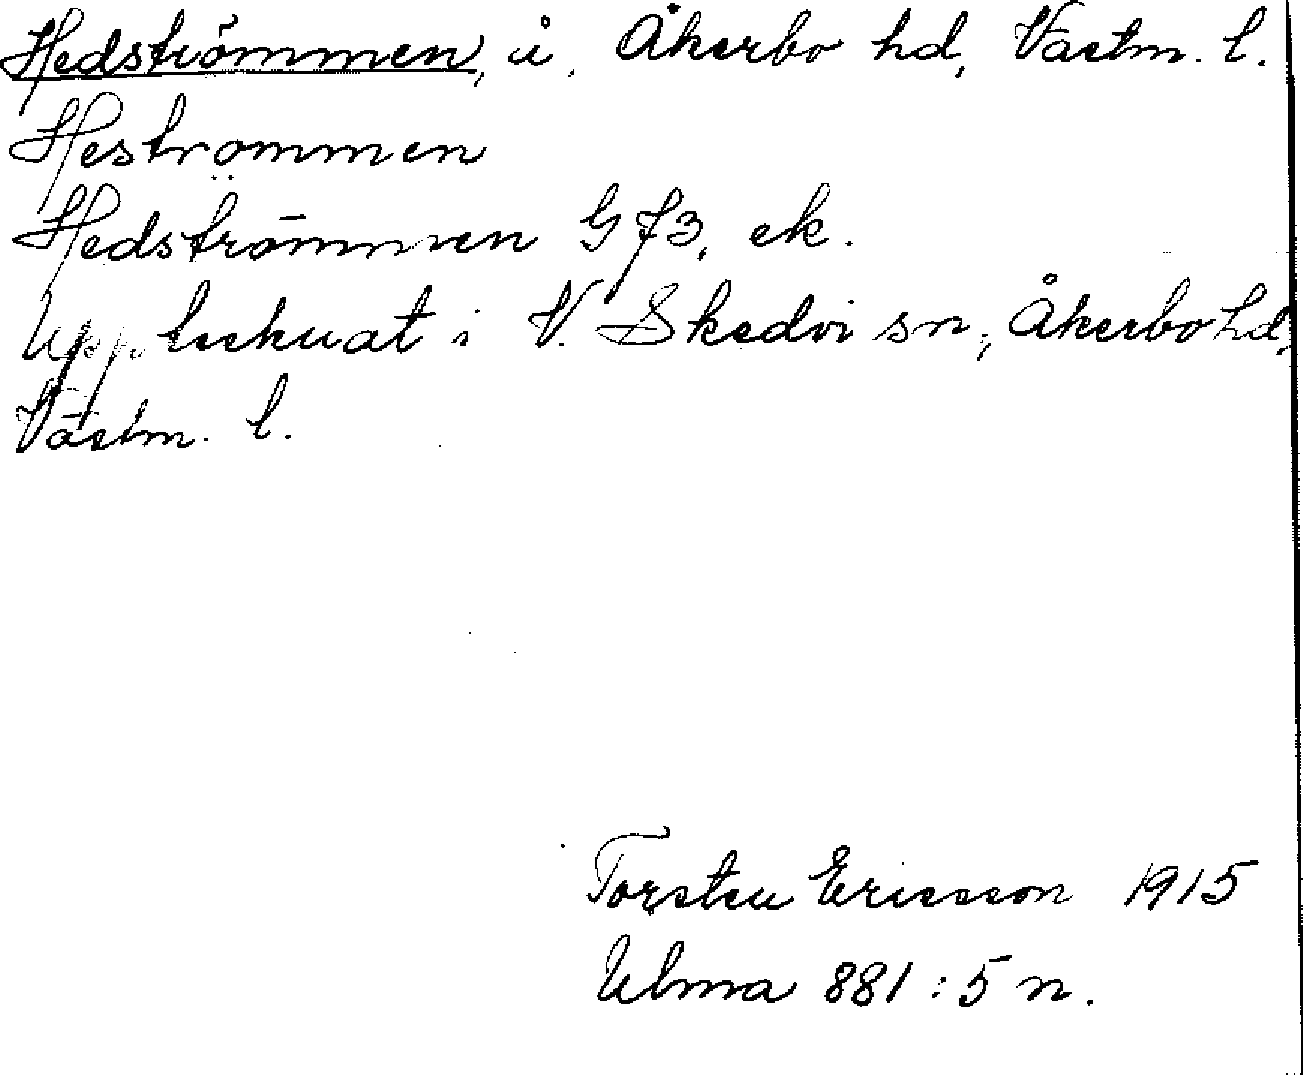 Hedströmmen, å, Åkerbo hd, Västm. l.
Hestro̤mmen
Hedströmmen G 73, ek.
Upptecknat i V. Skedvi sn, Åkerbo hd,
Västm. l.
Torsten Ericsson 1915
Ulma 881:5 n.